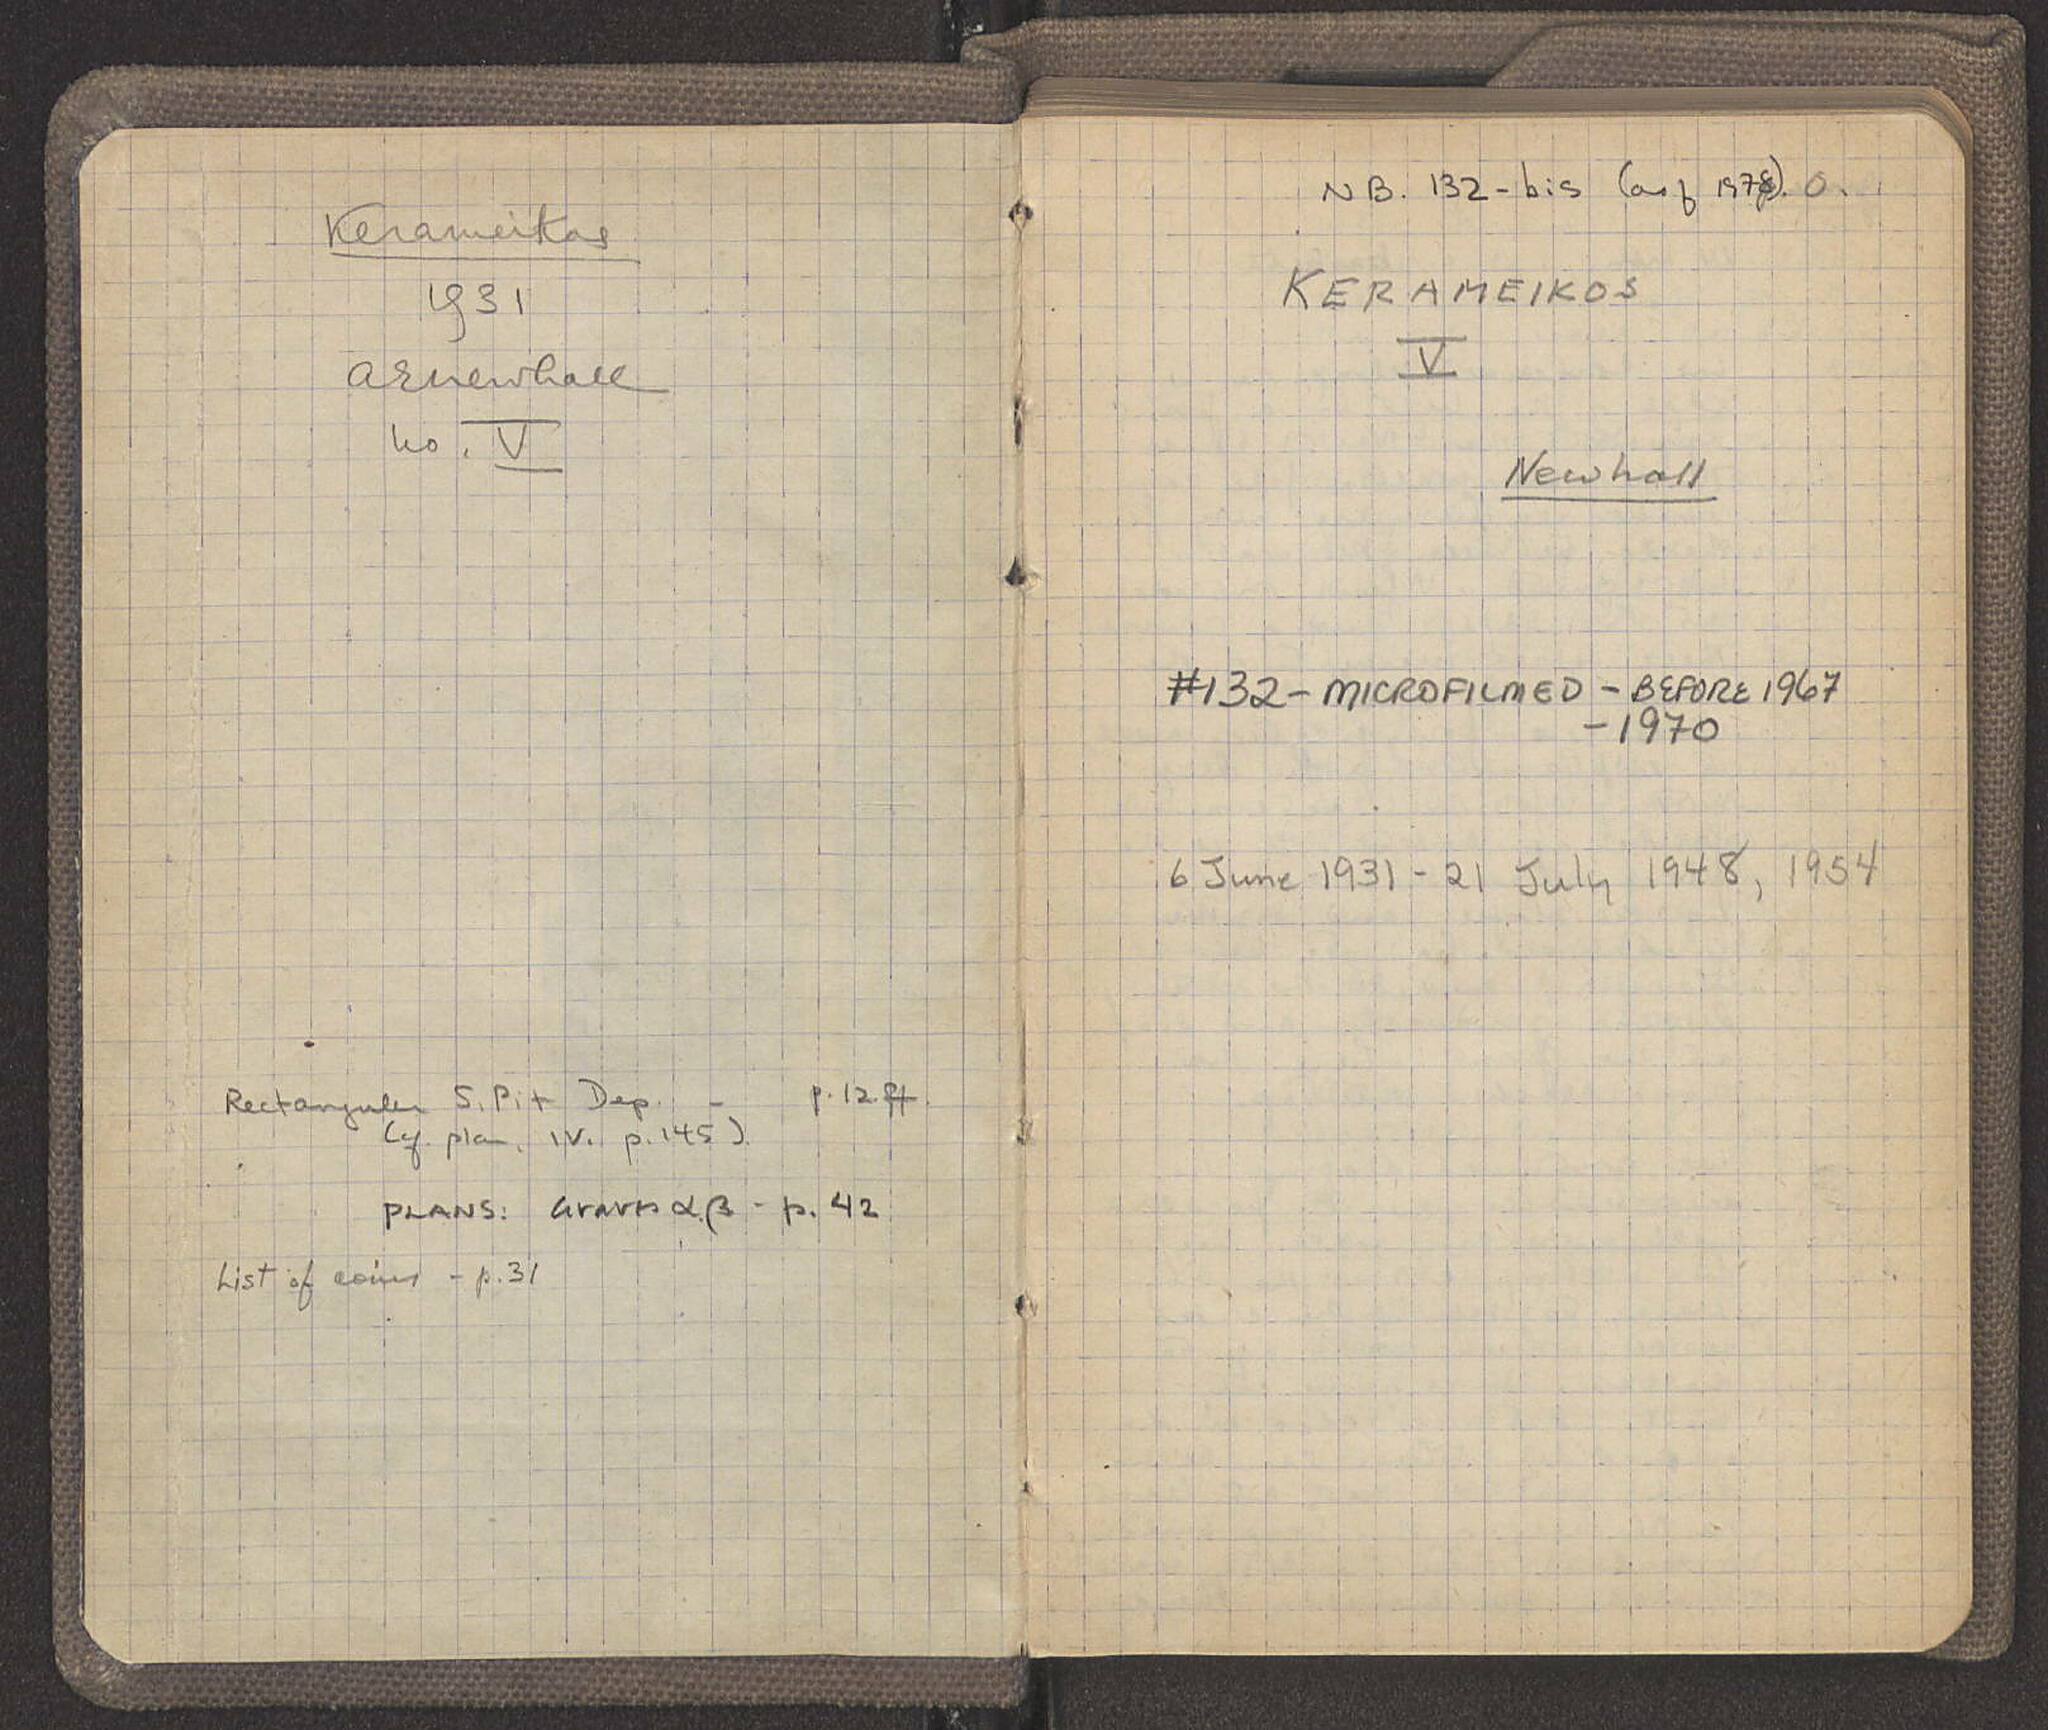 Kerameikos
1931
AENewhall
no. V
Rectangular S. Pit Dep. - p. 12 ff.
(cf. plan, IV. p. 145).
PLANS: Graves α β - p. 42
List of coins - p. 31
NB. 132-bis (as of 1978). 0.
KERAMEIKOS
V
Newhall
#132 - MICROFILMED - BEFORE 1967
- 1970
6 June 1931 - 21 July 1948, 1954